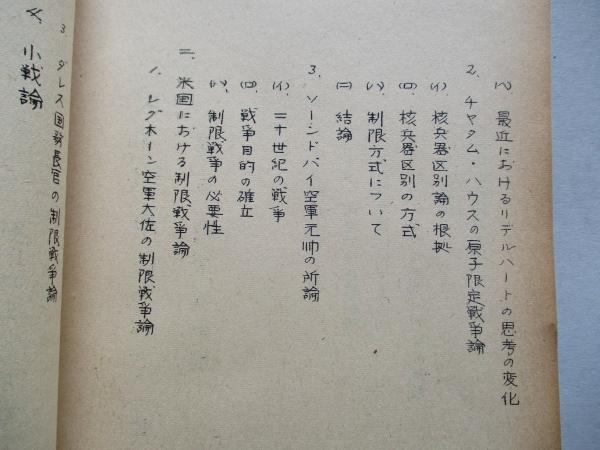 (ハ) 最近におけるリデルハートの思考の変化
2、チャタム・ハウスの原子限定戦争論
(イ) 核兵器区別論の根拠
(ロ) 核兵器区別の方式
(ハ) 制限方式について
(ニ) 結論
3、ソーンドバイ空軍元帥の所論
(イ) 二十世紀の戦争
(ロ) 戦争目的の確立
(ハ) 制限戦争の必要性
二、米国における制限戦争論
1、レグホーン空軍大佐の制限戦争論
3、ダレス国務長官の制限戦争論
小戦論